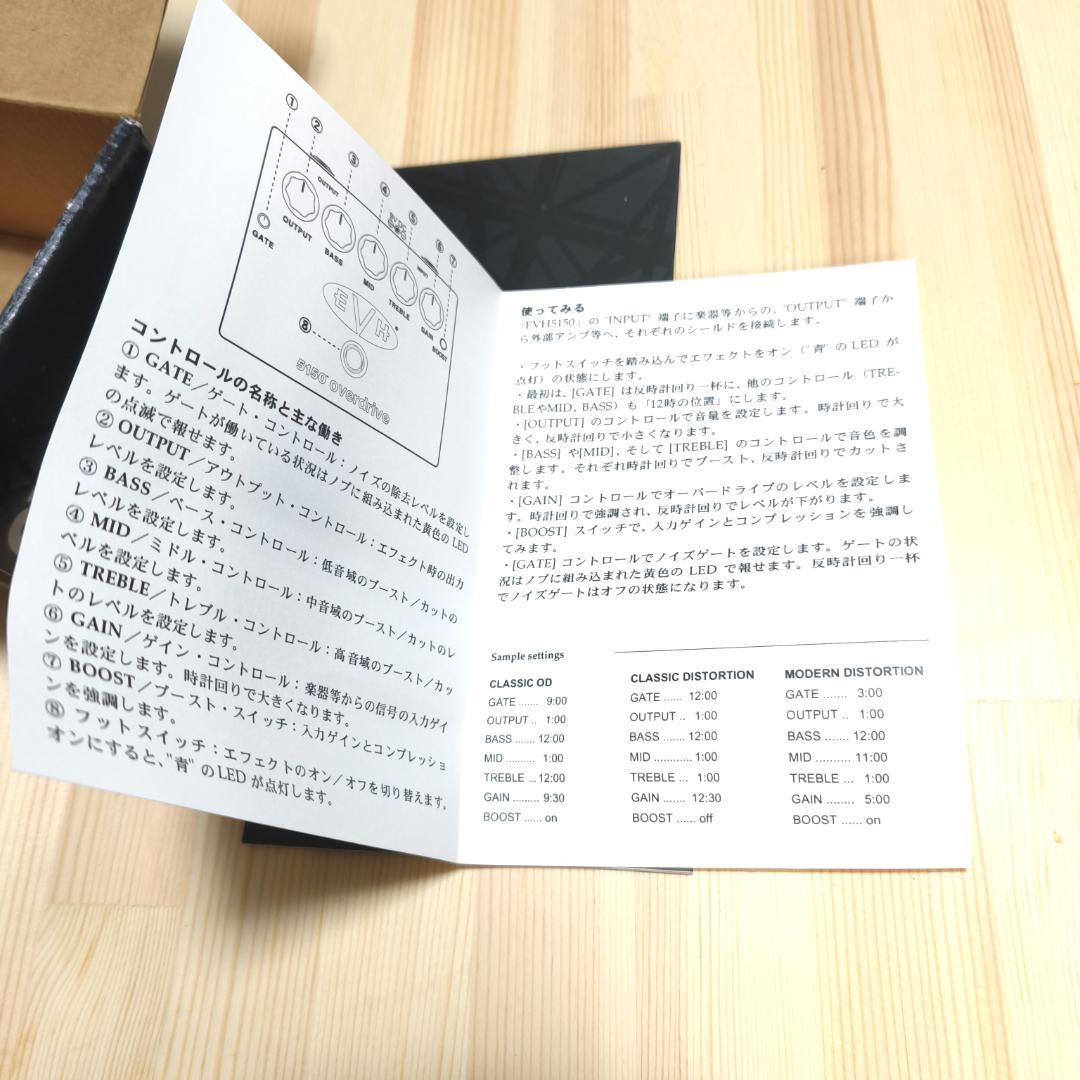 ①
②
③
④
⑤
⑥
⑦
OUTPUT
INPUT
OUTPUT
BASS
MID
TREBLE
GAIN
GATE
BOOST
EVH
⑧
5150 Overdrive
コントロールの名称と主な働き
① GATE／ゲート・コントロール：ノイズの除去レベルを設定し
ます。ゲートが働いている状況はノブに組み込まれた黄色の LED
の点滅で報せます。
② OUTPUT／アウトプット・コントロール：エフェクト時の出力
レベルを設定します。
③ BASS／ベース・コントロール：低音域のブースト／カットの
レベルを設定します。
④ MID／ミドル・コントロール：中音域のブースト／カットのレ
ベルを設定します。
⑤ TREBLE／トレブル・コントロール：高音域のブースト／カッ
トのレベルを設定します。
⑥ GAIN／ゲイン・コントロール：楽器等からの信号の入力ゲイ
ンを設定します。時計回りで大きくなります。
⑦ BOOST／ブースト・スイッチ：入力ゲインとコンプレッショ
ンを強調します。
⑧ フットスイッチ：エフェクトのオン／オフを切り替えます。
オンにすると、"青" のLED が点灯します。
使ってみる
「EVH5150」の "INPUT" 端子に楽器等からの、"OUTPUT" 端子か
ら外部アンプ等へ、それぞれのシールドを接続します。
・フットスイッチを踏み込んでエフェクトをオン（"青" の LED が
点灯）の状態にします。
・最初は、[GATE] は反時計回り一杯に、他のコントロール（TRE-
BLEやMID、BASS）も「12時の位置」にします。
・[OUTPUT] のコントロールで音量を設定します。時計回りで大
きく、反時計回りで小さくなります。
・[BASS] や[MID]、そして [TREBLE] のコントロールで音色を調
整します。それぞれ時計回りでブースト、反時計回りでカットさ
れます。
・[GAIN] コントロールでオーバードライブのレベルを設定しま
す。時計回りで強調され、反時計回りでレベルが下がります。
・[BOOST] スイッチで、入力ゲインとコンプレッションを強調し
てみます。
・[GATE] コントロールでノイズゲートを設定します。ゲートの状
況はノブに組み込まれた黄色の LED で報せます。反時計回り一杯
でノイズゲートはオフの状態になります。
Sample settings
CLASSIC OD
GATE ....... 9:00
OUTPUT .. 1:00
BASS ....... 12:00
MID ......... 1:00
TREBLE ... 12:00
GAIN ......... 9:30
BOOST ...... on
CLASSIC DISTORTION
GATE ...... 12:00
OUTPUT .. 1:00
BASS ....... 12:00
MID ............ 1:00
TREBLE ... 1:00
GAIN ....... 12:30
BOOST ...... off
MODERN DISTORTION
GATE ....... 3:00
OUTPUT .. 1:00
BASS ....... 12:00
MID .......... 11:00
TREBLE ... 1:00
GAIN ........ 5:00
BOOST ...... on